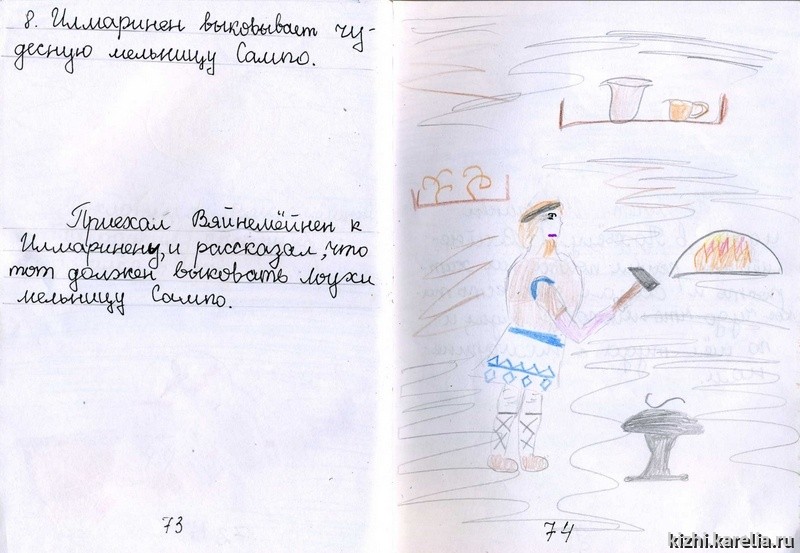 8. Илмаринен выковывает чу-
десную мельницу Сампо.
Приехал Вяйнемёйнен к
Илмаринену, и рассказал, что
тот должен выковать Лоухи
мельницу Сампо.
73
74
kizhi.karelia.ru